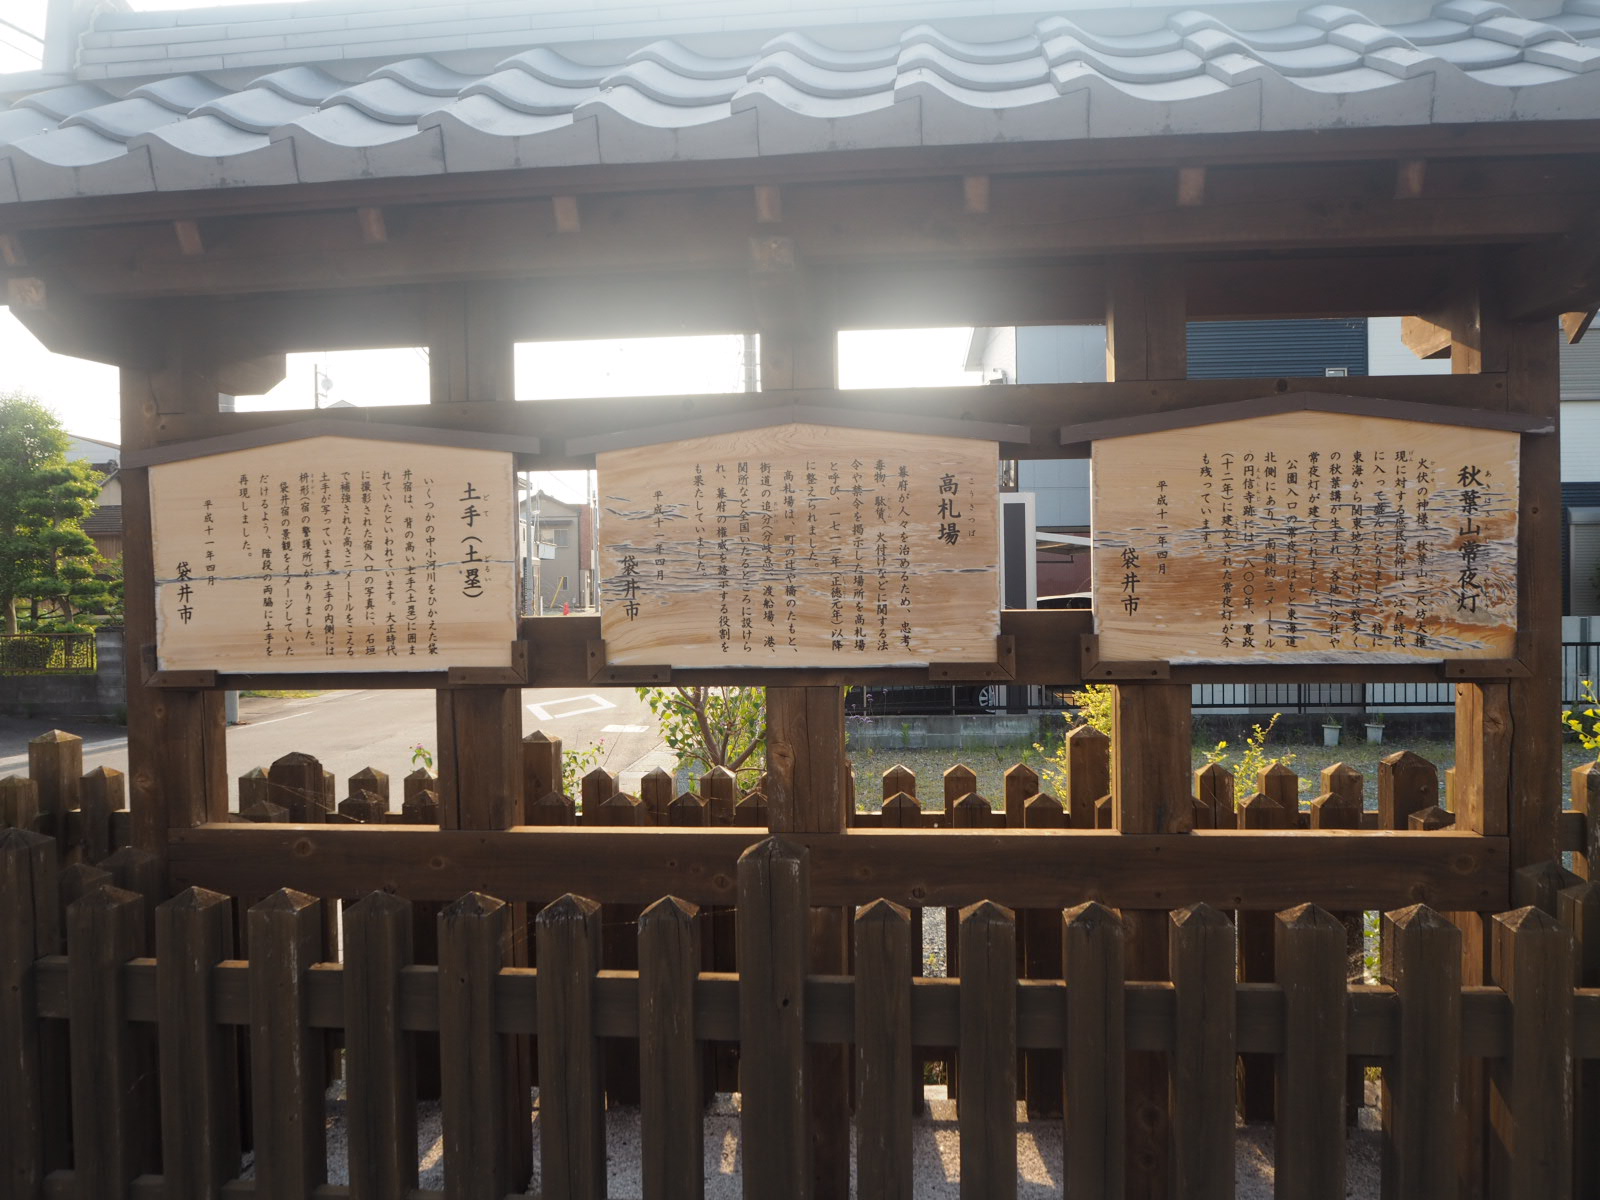 秋葉山常夜灯
火伏の神様、秋葉山三尺坊大権
現に対する庶民信仰は、江戸時代
に入って盛んになりました。特に
東海から関東地方にかけて数多く
の秋葉講が生まれ、各地に分社や
常夜灯が建てられました。
公園入口の常夜灯はもと東海道
北側にあり、南側約二メートル
の円信寺跡には一八〇〇年、寛政
(十二年)に建立された常夜灯が今
も残っています。
平成十一年四月
袋井市
こうさつば
高札場
幕府が人々を治めるため、忠孝、
毒物、駄賃、火付けなどに関する法
令や禁令を掲示した場所を高札場
と呼び、一七一一年(正徳元年)以降
に整えられました。
高札場は、町の辻や橋のたもと、
街道の追分(分岐点)、渡船場、港、
関所など全国いたるところに設けら
れ、幕府の権威を誇示する役割を
も果たしていました。
平成十一年四月
袋井市
どて どるい
土手(土塁)
いくつかの中小河川をひかえた袋
井宿は、背の高い土手(土塁)に囲ま
れていたといわれています。大正時代
に撮影された宿入口の写真に、石垣
で補強された高さニメートルをこえる
土手が写っています。土手の内側には
枡形(宿の警護所)がありました。
袋井宿の景観をイメージしていた
だけるよう、階段の両脇に土手を
再現しました。
平成十一年四月
袋井市